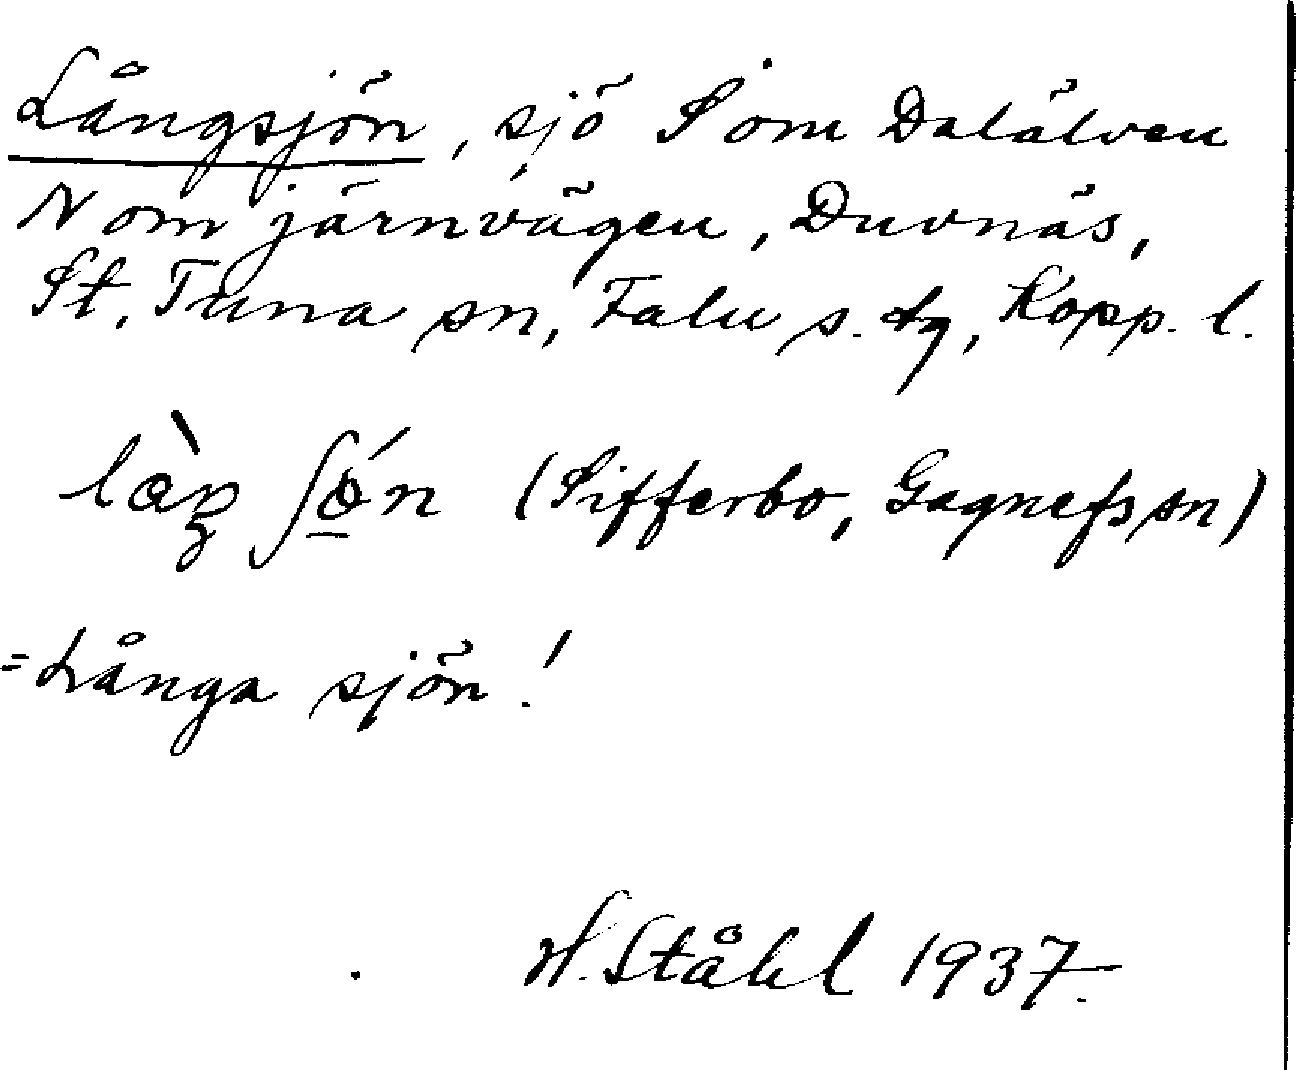 Långsjön, sjö S om Dalälven
N om järnvägen, Duvnäs,
St. Tuna sn, Falu s. tg, Kopp. l.
làŋ ʃǿ̱n (Sifferbo, Gagnefs sn)
= Långa sjön!
H. Ståhl 1937.